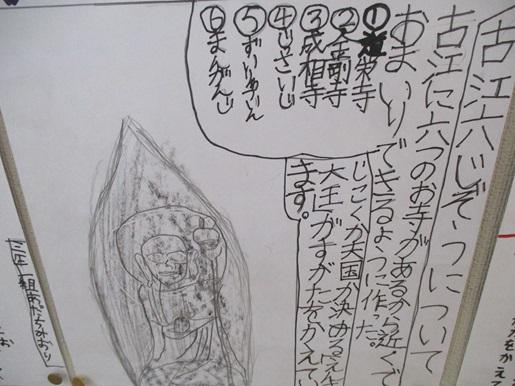 古江六じぞうについて
古江に六つのお寺があるから近くで
おまいりできるように作った。
じごくか天国か決めるえんま
大王がすがたをかえてい
ます。
①道栄寺
②金剛寺
③成相寺
④じさいじ
⑤ずいゆいん
⑥まんがんじ
三年一組あだちみおり